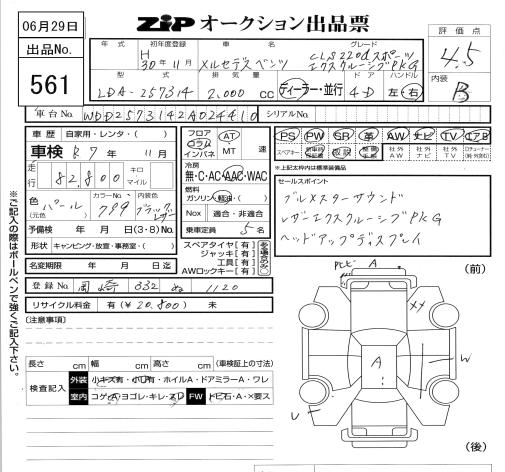 06月29日
出品No.
561
ZIP オークション出品票
評価点
4.5
内装
B
年式 初年度登録 車名 グレード
H 30年11月 メルセデスベンツ CLS220dスポーツ
エクスクルーシブPKG
型式 排気量 ドア ハンドル
LDA-257314 2,000 cc ディーラー・並行 4-D 左・右
車台No. WDD2573142A024410 シリアルNo.
車歴 自家用・レンタ・( )
車検 R7年 11月
走行 82,800 キロ マイル
色 (元色) パール カラーNo. 799 内装色 ブラックレザー
予備検 年 月 日(3・8)No.
形状 キャンピング・放宣・事務室・( )
名変期限 年 月 日迄
フロア コラム インパネ AT MT 速
冷房
無・C・AC・AAC・WAC
燃料
ガソリン・軽油・( )
Nox 適合・非適合
乗車定員 5名
スペアタイヤ[有]
ジャッキ[有]
工具[有]
AWロックキー[有]
PS PW SR 革 AW ナビ TV エアB
スペアキー 取説 社外AW 社外ナビ 社外TV
※上記太枠内は標準装備品
セールスポイント
ブルメスターサウンド
レザーエクスクルーシブPKG
ヘッドアップディスプレイ
登録No. 岡崎 332 ぬ 1120
リサイクル料金 有(¥20,800) 未
(注意事項)
※ご記入の際はボールペンで強くご記入下さい。
長さ cm 幅 cm 高さ cm (車検証上の寸法)
検査記入 外装 小キズ有・小凹有・ホイルA・ドアミラーA・ワレ
室内 コゲA・ヨゴレ・キレ・スレ FW トビ石・A・×要ス
(前)
A
XX
A
W
U
(後)